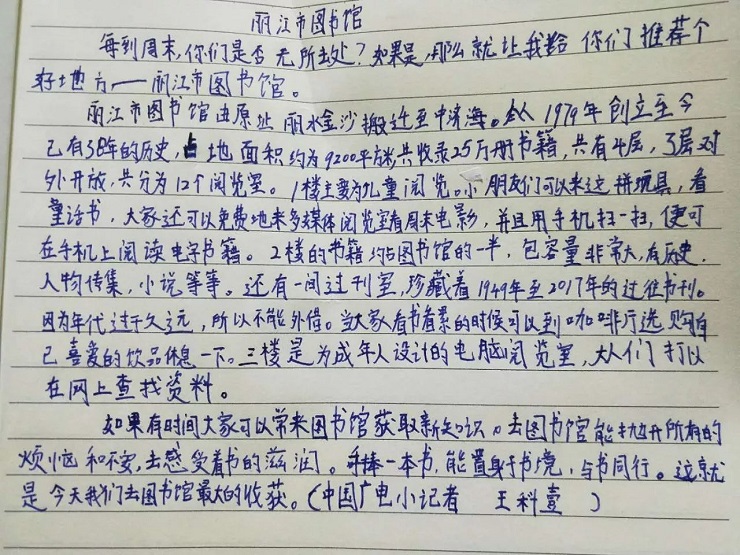 丽江市图书馆
每到周末,你们是否无所去处?如果是,那么就让我给你们推荐个
好地方——丽江市图书馆。
丽江市图书馆由原址丽水金沙搬迁至中济海。从1979年创立至今
已有38年的历史,占地面积约为9200平方米,共收录25万册书籍,共有4层,3层对
外开放,共分为12个阅览室。1楼主要为儿童阅览。小朋友们可以来这拼玩具,看
童话书,大家还可以免费地来多媒体阅览室看周末电影,并且用手机扫一扫,便可
在手机上阅读电子书籍。2楼的书籍约占图书馆的一半,包容量非常大,有历史,
人物传集,小说等等。还有一间过刊室,珍藏着1949年至2017年的过往书刊。
因为年代过于久远,所以不能外借。当大家看书看累的时候可以到咖啡厅选购自
己喜爱的饮品休息一下。三楼是为成年人设计的电脑阅览室,大人们可以
在网上查找资料。
如果有时间大家可以常来图书馆获取新知识。去图书馆能抛开所有的
烦恼和不安,去感受着书的滋润。手捧一本书,能置身于书境,与书同行。这就
是今天我们去图书馆最大的收获。(中国广电小记者 王科壹)